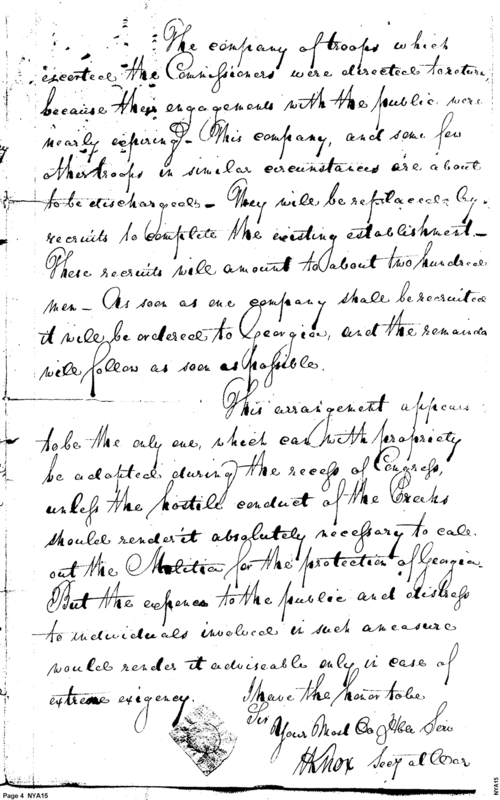 The company of troops which
escorted the Commissioners were directed to return,
because their engagements with the public were
nearly expiring - This company, and some few
other troops in similar circumstances are about
to be discharged - They will be replaced by
recruits to complete the existing establishment -
These recruits will amount to about two hundred
men - As soon as one company shall be recruited
it will be ordered to Georgia, and the remainder
will follow as soon as possible.
This arrangement appears
to be the only one, which can with propriety
be adopted during the recess of Congress,
unless the hostile conduct of the Creeks
should render it absolutely necessary to call
out the Militia for the protection of Georgia
But the expence to the public and distress
to individuals involved in such a measure
would render it adviseable only in case of
extreme exigency.
I have the honor to be
Sir
Your Most Obed Hbe Serv
HKnox Secy at War
Page 4 NYA15
NYA15